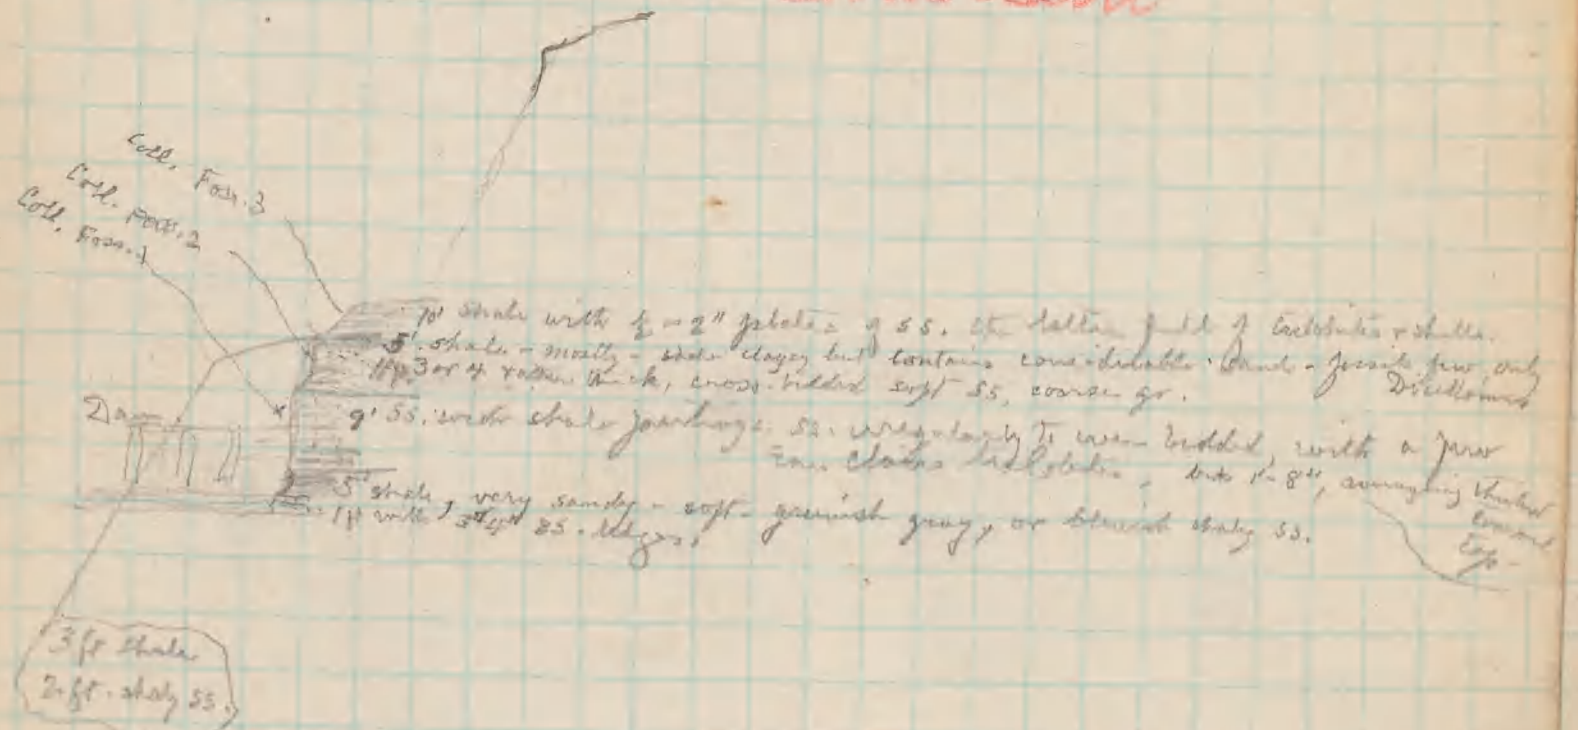 Coll. Foss. 3
Coll. Foss. 2
Coll. Foss. 1
10' shale with ½ - 2" plates of ss. the latter full of trilobites & shells.
5' shale - mostly - clayey but contains considerable sand - fossils few, only
3 or 4 rather thick, cross-bedded soft ss, coarse gr.
Dam
9' SS. with shale partings. ss. irregularly to even bedded, with a few
trilobites, 1"- 8", averaging thicker
toward
top -
5' shale, very sandy - soft - greenish gray, or bluish shaly ss.
1 ft with 3"-4" ss. ledges.
3 ft shale
2 ft. shaly ss.